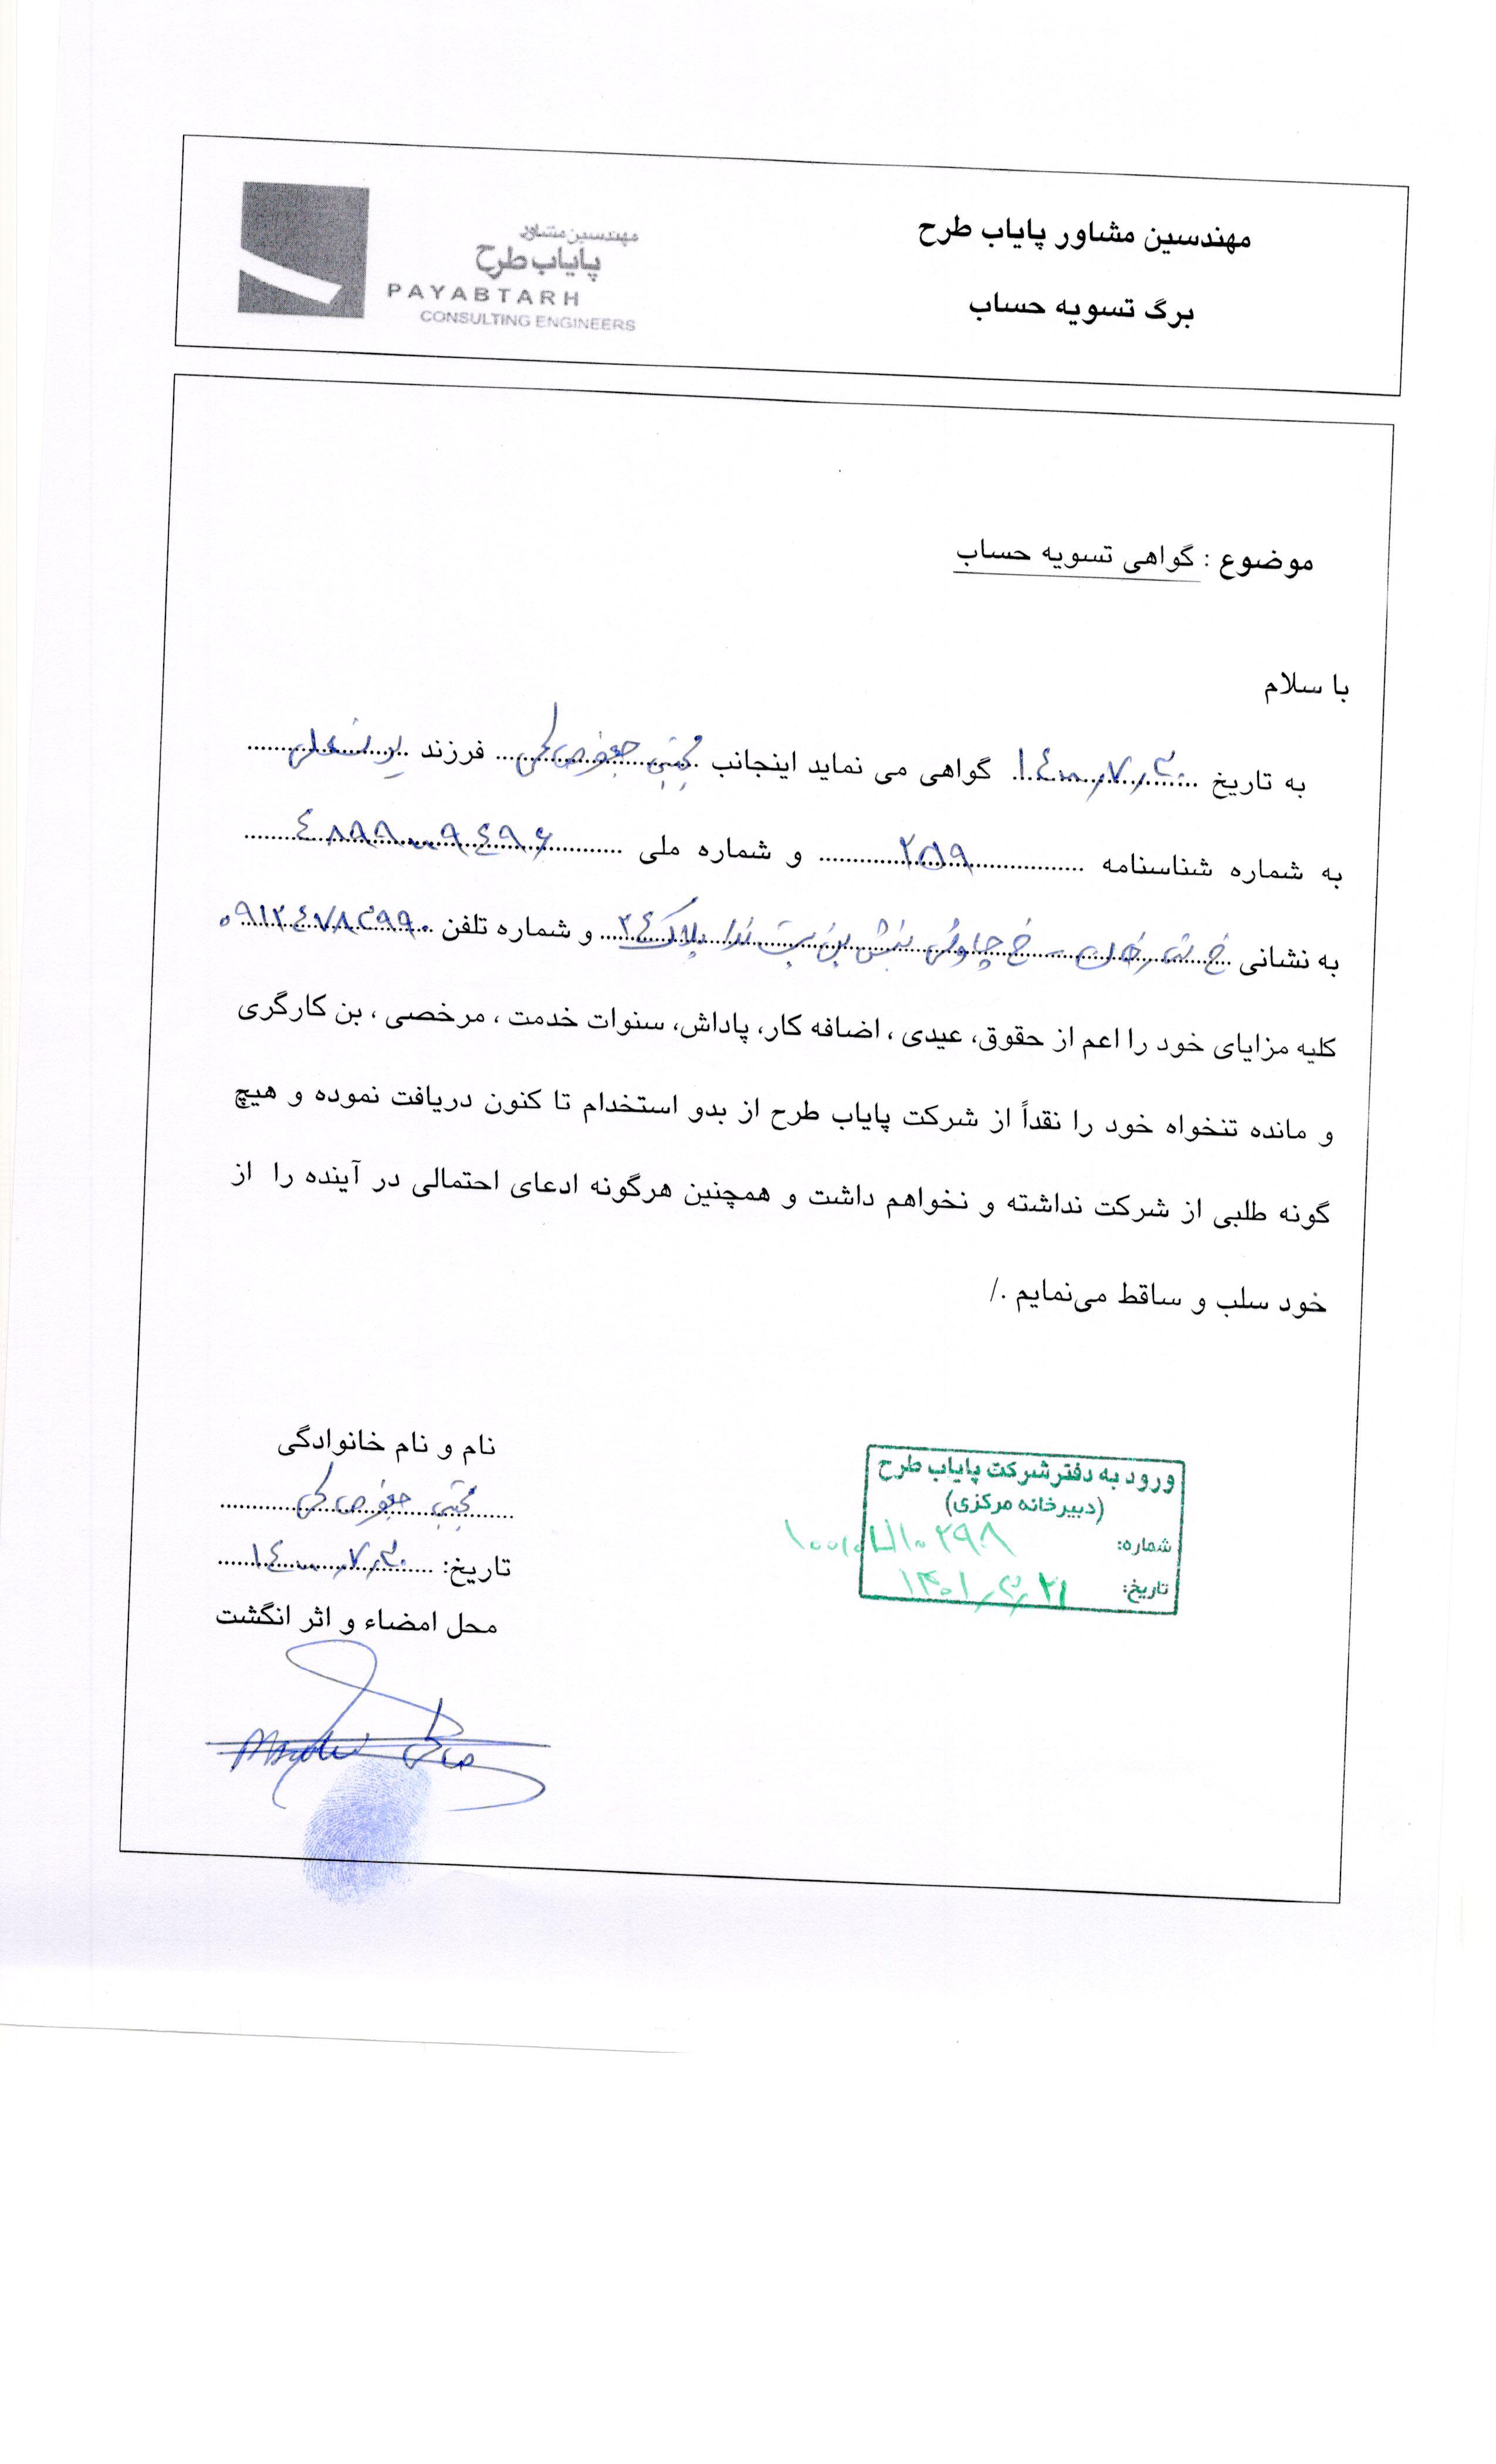 مهندسین مشاور پایاب طرح
برگ تسویه حساب
مهندسین مشاور
پایاب طرح
PAYABTARH
CONSULTING ENGINEERS
موضوع : گواهی تسویه حساب
با سلام
به تاریخ ۱۴۰۰٫۷٫۳۰ گواهی می نماید اینجانب مجتبی جعفر صالحی فرزند
به شماره شناسنامه ۲۵۹ و شماره ملی ۴۸۹۹۰۰۹۴۹۶
به نشانی خ خ چاوشی نبش بن بست ندا پلاک ۲۴ و شماره تلفن ۰۹۱۲۴۷۸۳۹۹۰
کلیه مزایای خود را اعم از حقوق، عیدی ، اضافه کار، پاداش، سنوات خدمت ، مرخصی ، بن کارگری
و مانده تنخواه خود را نقداً از شرکت پایاب طرح از بدو استخدام تا کنون دریافت نموده و هیچ
گونه طلبی از شرکت نداشته و نخواهم داشت و همچنین هرگونه ادعای احتمالی در آینده را از
خود سلب و ساقط می‌نمایم ./
نام و نام خانوادگی
مجتبی جعفر صالحی
تاریخ: ۱۴۰۰٫۷٫۳۰
محل امضاء و اثر انگشت
ورود به دفتر شرکت پایاب طرح
(دبیرخانه مرکزی)
شماره:
تاریخ: ۱۴۰۱٫۳٫۲۱